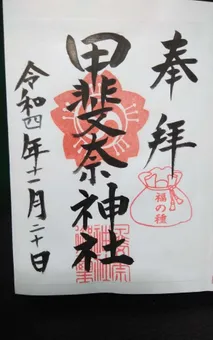 奉拝
福の種
甲斐奈神社
令和四年十一月二十日